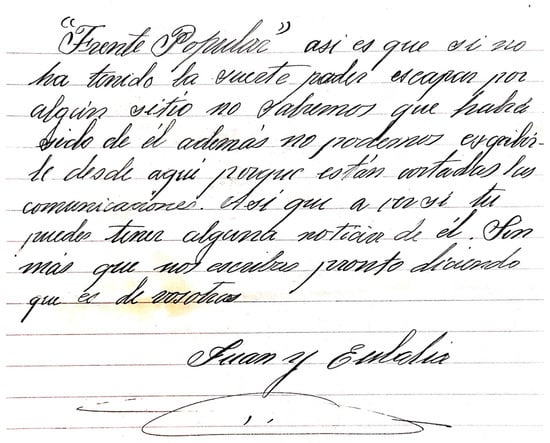 "Frente Popular" asi es que si no
ha tenido la suerte poder escapar por
algún sitio no sabremos que habrá
sido de él además no podemos escribir-
le desde aquí porque están cortadas las
comunicaciones. Asi que a ver si tu
puedes tener alguna noticia de él. Sin
más que nos escribas pronto diciendo
que es de vosotros
Juan y Eulalia